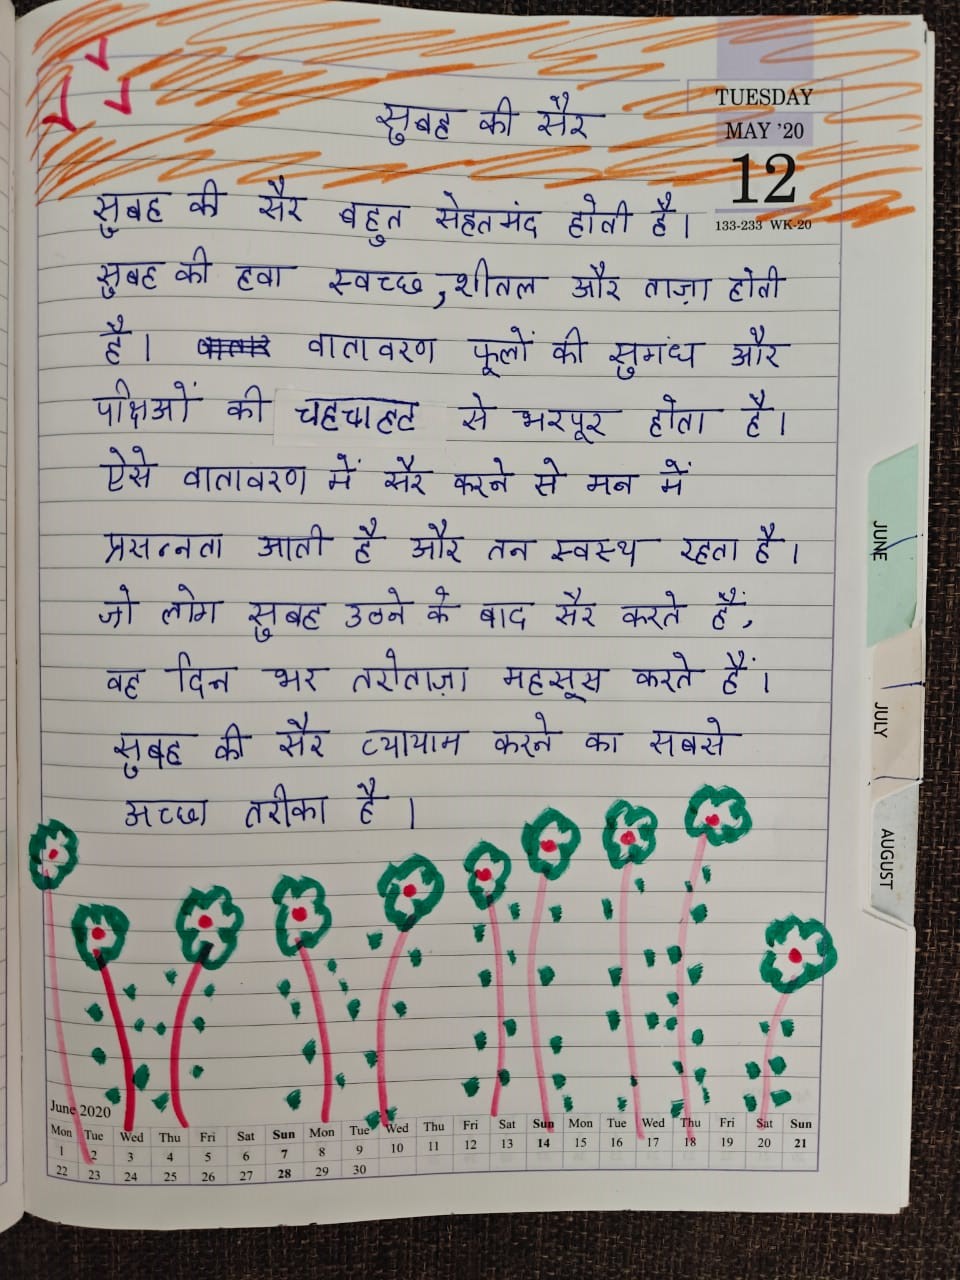 सुबह की सैर
TUESDAY
MAY '20
12
133-233 WK-20
सुबह की सैर बहुत सेहतमंद होती है।
सुबह की हवा स्वच्छ, शीतल और ताज़ा होती
है। वातावरण फूलों की सुगंध और
पक्षिओं की चहचाहट से भरपूर होता है।
ऐसे वातावरण में सैर करने से मन में
प्रसन्नता आती है और तन स्वस्थ रहता है।
जो लोग सुबह उठने के बाद सैर करते हैं,
वह दिन भर तरोताज़ा महसूस करते हैं।
सुबह की सैर व्यायाम करने का सबसे
अच्छा तरीका है।
JUNE
JULY
AUGUST
June 2020
Mon Tue Wed Thu Fri Sat Sun Mon Tue Wed Thu Fri Sat Sun Mon Tue Wed Thu Fri Sat Sun
1 2 3 4 5 6 7 8 9 10 11 12 13 14 15 16 17 18 19 20 21
22 23 24 25 26 27 28 29 30